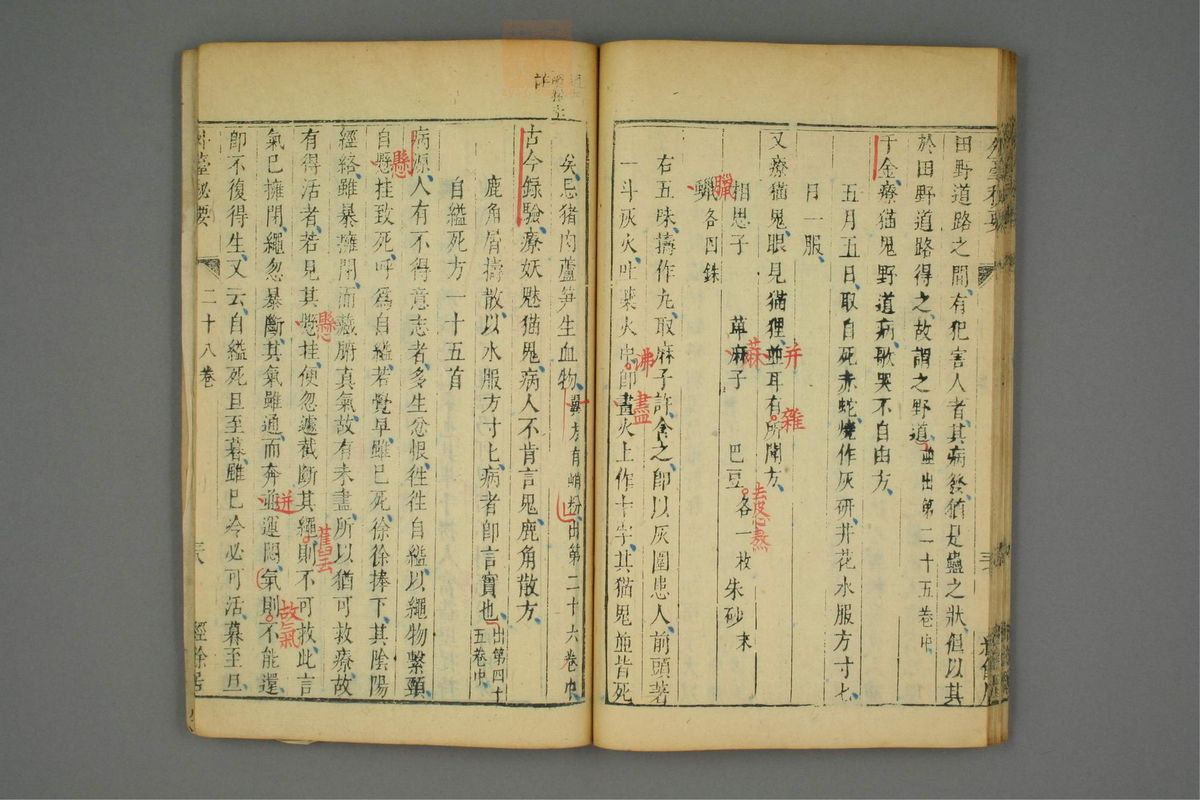 田野道路之間有犯害人者其病發猶是蠱之狀但以其
於田野道路得之故謂之野道並出第二十五卷中
千金療猫鬼野道病歌哭不自由方
五月五日取自死赤蛇燒作灰研井花水服方寸匕
月一服
又療猫鬼眼見猫狸並耳有所聞方
并
雜
相思子 草麻子 巴豆各一枚 朱砂末
蔴
去皮心熬
蠟各四銖
臘
右五味擣作丸取麻子許含之卽以灰圍患人前頭著
一斗灰火吐藥火中卽畫火上作十字其猫鬼並皆死
沸
盡
矣忌猪肉蘆笋生血物翼方有蛸粉出第二十六卷中
古今錄驗療妖魅猫鬼病人不肯言鬼鹿角散方
鹿角屑擣散以水服方寸匕病者卽言實也出第四十五卷中
自縊死方一十五首
病源人有不得意志者多生忿恨往往自縊以繩物繫頸
自懸挂致死呼爲自縊若覺早雖已死徐徐捧下其陰陽
懸
經絡雖暴擁閉而藏腑真氣故有未盡所以猶可救療故
有得活者若見其懸挂便忽遽截斷其繩則不可救此言
懸
舊云
氣已擁閉繩忽暴斷其氣雖通而奔並運悶氣則不能還
迸
故氣
卽不復得生又云自縊死旦至暮雖已冷必可活暮至旦
外臺秘要 二十八卷 經餘居